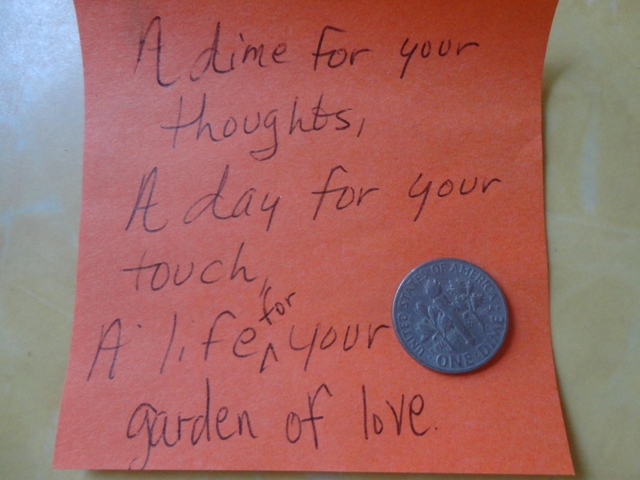 A dime for your
thoughts,
A day for your
touch,
A life for your
garden of love.
UNITED STATES OF AMERICA
ONE DIME